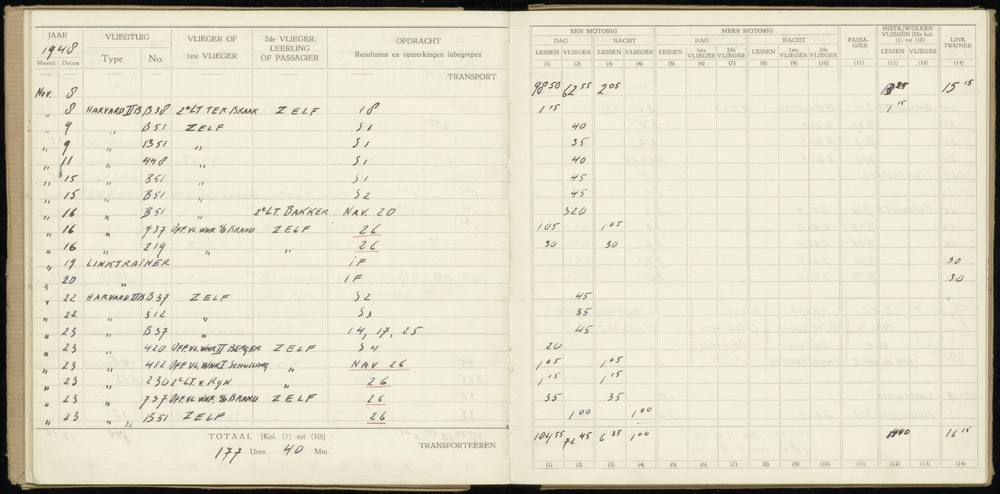 JAAR VLIEGTUIG VLIEGER OF 1ste VLIEGER 2de VLIEGER, LEERLING OF PASSAGIER OPDRACHT
1948 Resultaten en opmerkingen inbegrepen
Maand Datum Type No.
TRANSPORT
Nov. 8
" 8 HARVARD II B B38 2e LT TER BRAAK ZELF 18
" 9 " B51 ZELF S1
" 9 " B51 " S1
" 11 " 448 " S1
" 15 " B51 " S1
" 15 " B51 " S2
" 16 " B51 2e LT. BAKKER NAV. 20
" 16 " 737 OFF. VL. WNR BRAND ZELF 26
" 16 " 219 " " 26
" 19 LINKTRAINER IF
" 20 " IF
" 22 HARVARD IIB B37 ZELF S2
" 22 " 312 " S3
" 23 " B37 " 14, 17, 25
" 23 " 420 OFF. VL. WNR II BERGER ZELF S4
" 23 " 412 OFF. VL. WNR I SCHUILING " NAV 26
" 23 " 230 2e LT. v. RYN 26
" 23 " 737 OFF VL WNR BRAND ZELF 26
" 23 " B51 ZELF 26
TOTAAL [Kol. (1) tot (10)]
177 Uren 40 Min.
TRANSPORTEEREN
EEN MOTORIG MEER MOTORIG PASSA-GIER INSTR/WOLKEN VLIEGEN [Uit kol. (1) tot (10) LINK TRAINER
DAG NACHT DAG NACHT
LESSEN VLIEGER LESSEN VLIEGER LESSEN 1ste VLIEGER 2de VLIEGER LESSEN 1ste VLIEGER 2de VLIEGER LESSEN VLIEGER
(1) (2) (3) (4) (5) (6) (7) (8) (9) (10) (11) (12) (13) (14)
98 50 62 55 2 05 15 15
1 15 1 15
40
35
40
45
45
320
1 05 1 05
30 30
30
30
45
35
45
20
1 05 1 05
1 15 1 15
35 35
1 00 1 00
104 55 72 45 6 35 1 00 16 15
(1) (2) (3) (4) (5) (6) (7) (8) (9) (10) (12) (13) (14)